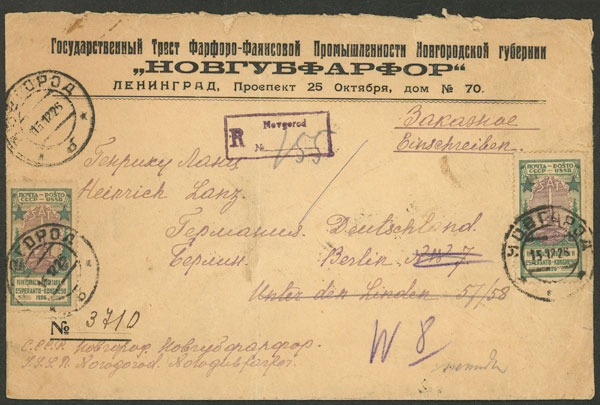 Государственный Трест Фарфоро-Фаянсовой Промышленности Новгородской губернии
„НОВГУБФАРФОР“
ЛЕНИНГРАД, Проспект 25 Октября, дом № 70.
НОВГОРОД
15.12.25
Заказное
Einschreiben.
R Novgorod
№ 155
Генриху Ланц
Heinrich Lanz.
Германия. Deutschland.
Берлин. Berlin. NW 7
Unter den Linden 57/58
W 8
ПОЧТА - POŜTO
СССР - USSR
ESPERANTO-KONGRESO
1926
ПОЧТА - POŜTO
СССР - USSR
ESPERANTO-KONGRESO
1926
НОВГОРОД
15.12.25
№ 3710
Новгород. Новгубфарфор.